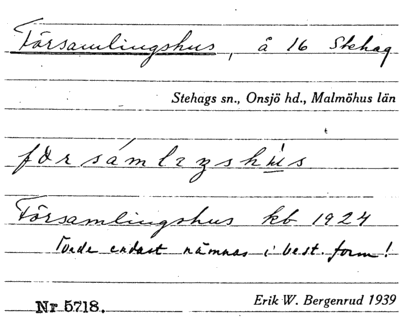 Församlingshus, å 16 Stehag
Stehags sn., Onsjö hd., Malmöhus län
Församlingshus kb 1924
endast nämnas i best. form!
Nr 5718.
Erik W. Bergenrud 1939